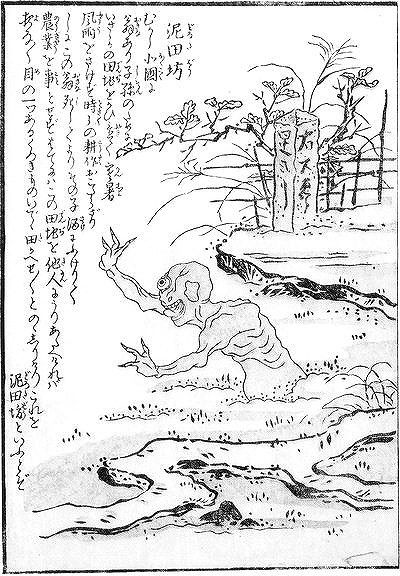 泥田坊
むかし北國に
翁あり子孫のために
いさゝかの田地をかひ置て寒暑
風雨をさけず時〻の耕作おこたらざり
しにこの翁死してよりその子酒にふけりて
農業を事とせずはてにハこの田地を他人にうりあたへけれバ
夜な〳〵目の一つあるくろきものいでゝ田かへせ〳〵とのゝしりけりこれを
泥田坊といふとぞ